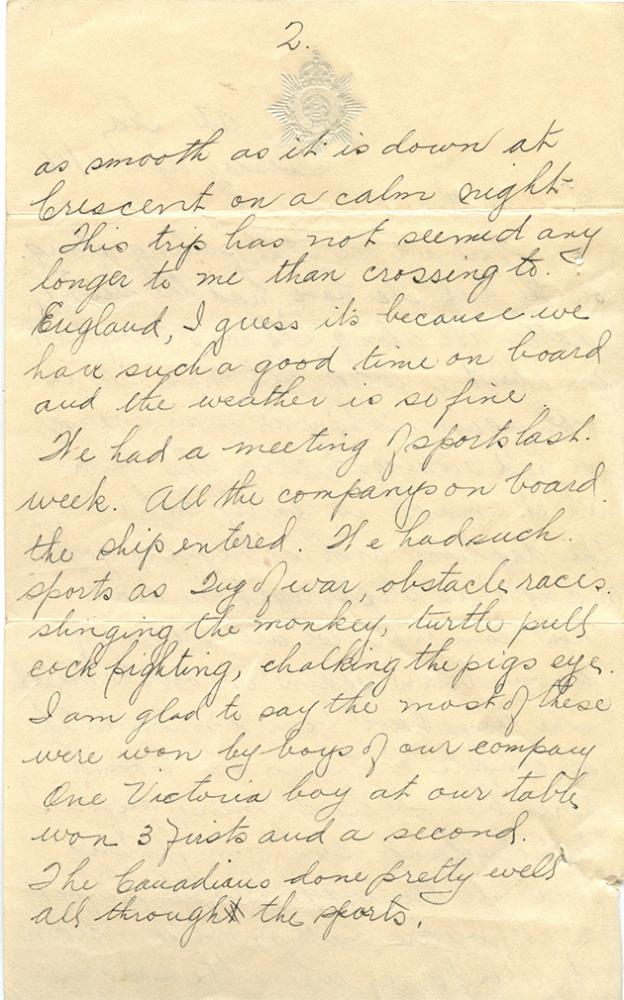 2.
as smooth as it is down at
Crescent on a calm night
This trip has not seemed any
longer to me than crossing to.
England, I guess its because we
have such a good time on board
and the weather is so fine.
We had a meeting of sports last.
week. All the companys on board.
the ship entered. We had such.
sports as Tug of war, obstacle races.
slinging the monkey, turtle pull
cock fighting, chalking the pigs eye.
I am glad to say the most of these
were won by boys of our company
One Victoria boy at our table
won 3 firsts and a second.
The Canadians done pretty well
all through the sports.